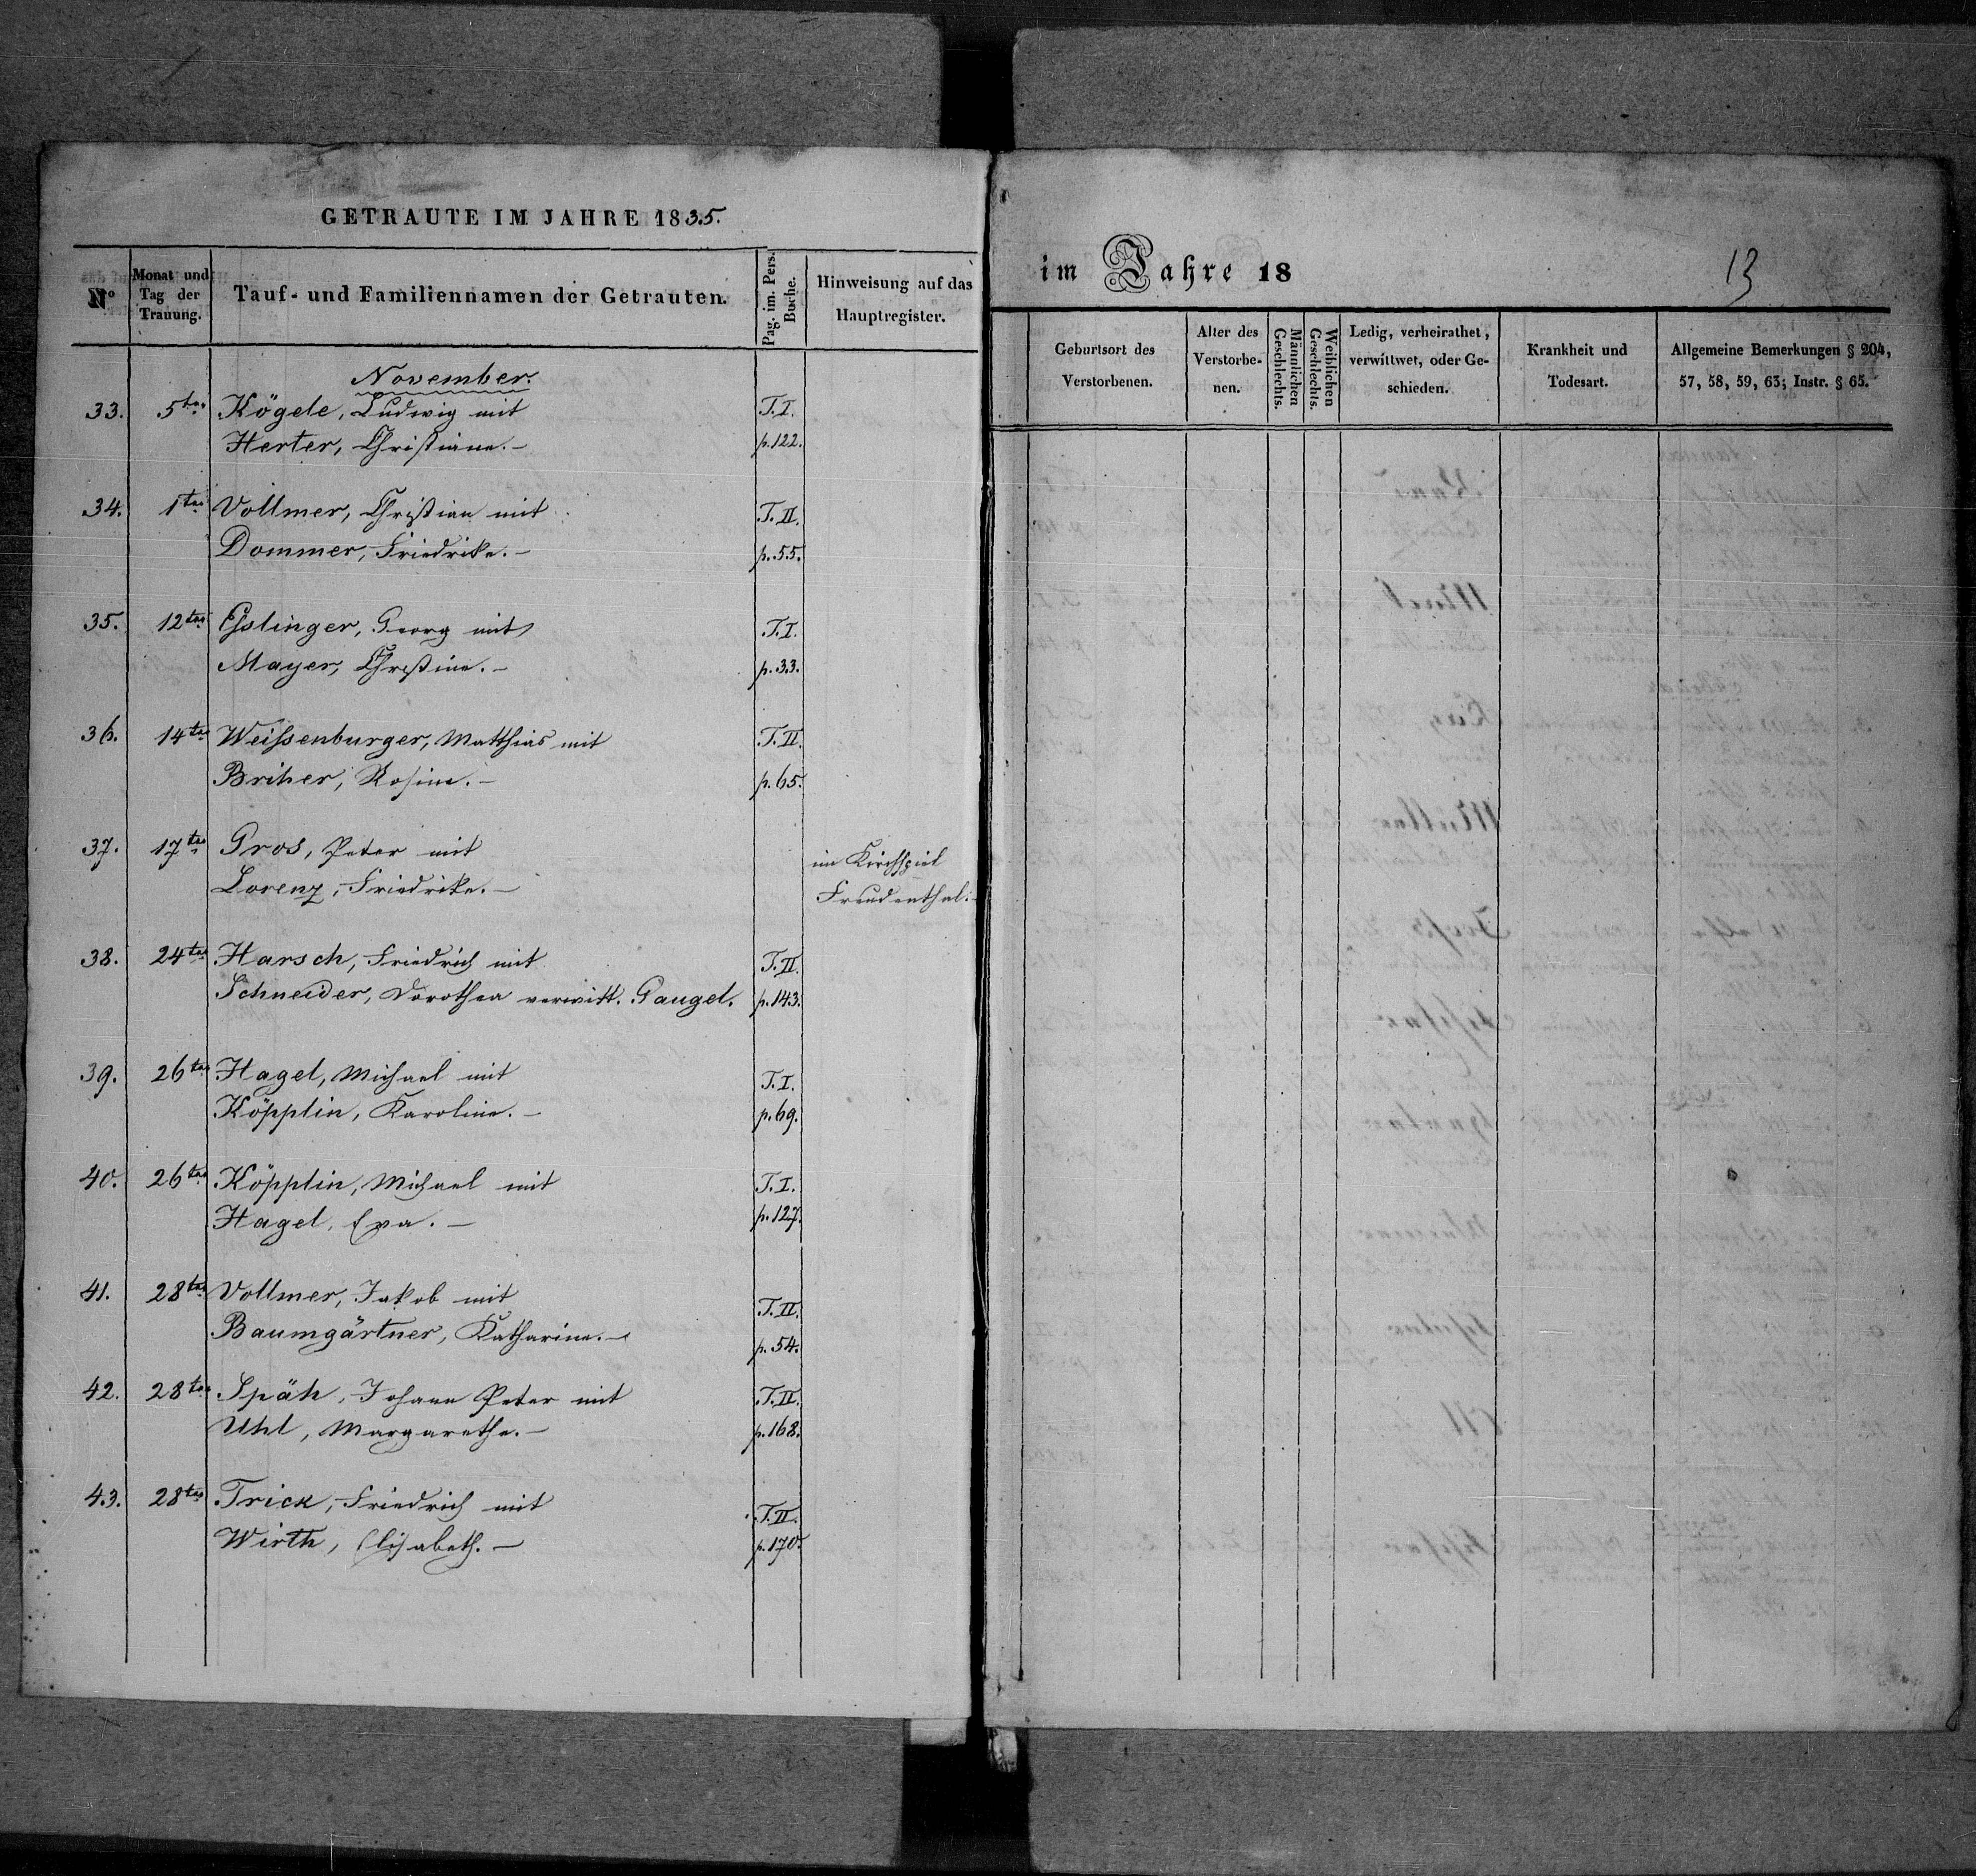 GETRAUTE IM JAHRE 1835.
No
Monat und Tag der Trauung.
Tauf- und Familiennamen der Getrauten.
Pag. im. Pers. Buche.
Hinweisung auf das Hauptregister.
November.
33. 5ten Kögele, Ludwig mit T. I.
Herter, Christiane. – p. 122.
34. 1ten Vollmer, Christian mit T. II.
Dommer, Friedrike. – p. 55.
35. 12ten Eßlinger, Georg mit T. I.
Mayer, Christine. – p. 33.
36. 14ten Weißenburger, Matthias mit T. II.
Briher, Rosine. – p. 65.
37. 17ten Gros, Peter mit im Kirchspiel
Lorenz, Friedrike. – Freudenthal.
38. 24ten Harsch, Friedrich mit T. II.
Schneider, Dorothea verwitt. Gaugel. p. 143.
39. 26ten Hagel, Michael mit T. I.
Köpplin, Karoline. – p. 69.
40. 26ten Köpplin, Michael mit T. I.
Hagel, Eva. – p. 127.
41. 28ten Vollmer, Jakob mit T. II.
Baumgärtner, Katharine. – p. 54.
42. 28ten Späh, Johann Peter mit T. II.
Uhl, Margarethe. – p. 168.
43. 28ten Trick, Friedrich mit T. II.
Wirth, Elisabeth. – p. 170.
im Jahre 18
13
Geburtsort des Verstorbenen.
Alter des Verstorbe-nen.
Männlichen Geschlechts.
Weiblichen Geschlechts.
Ledig, verheirathet, verwittwet, oder Ge-schieden.
Krankheit und Todesart.
Allgemeine Bemerkungen § 204, 57, 58, 59, 63; Instr. § 65.